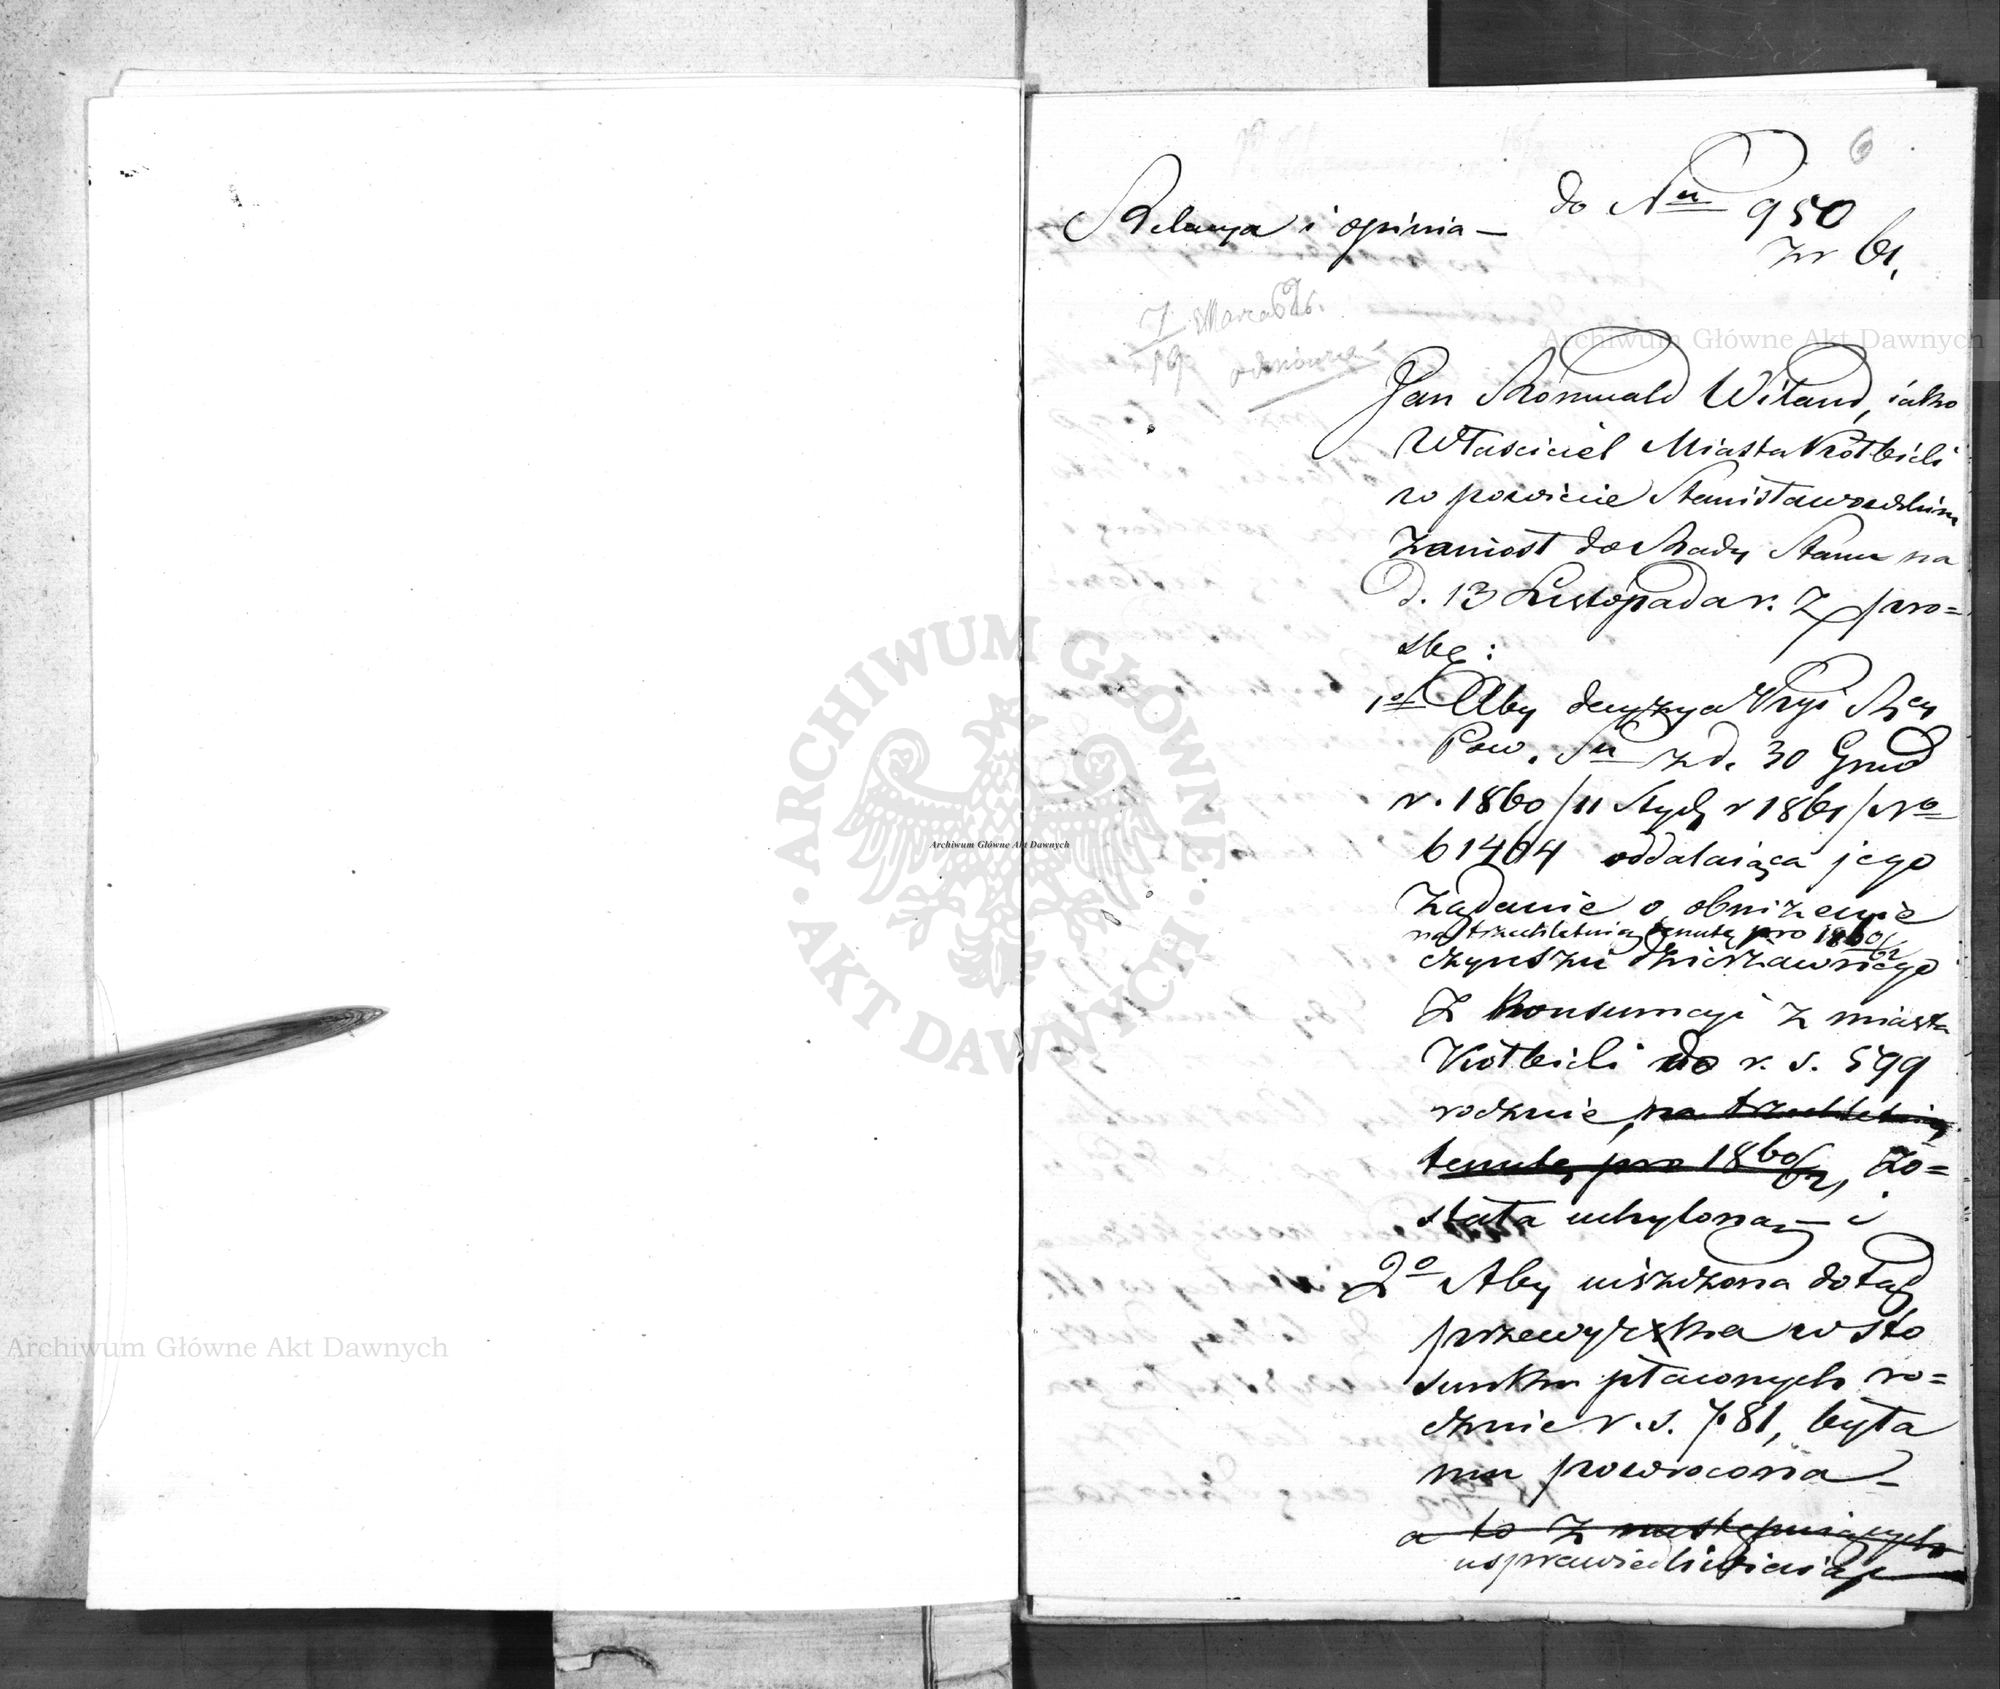 6
do Nru 950
zr 61.
Relacya i opinia —
7/19 Marca 62 r.
odmówna
Jan Romuald Wiland, iako
Właściciel Miasta Kołbieli
w powiecie Stanisławowskim
zaniosł do Rady Stanu na
d. 13 Listopada r. z pro=
sbę:
1o Aby decyzya Kyi Rey
Pow. Su z d. 30 Grud
r. 1860/11 Stycz r 1861/ No
61464 oddalaiąca jego
żądanie o obniżenie
na trzechletnią tenutę pro 1860/62
czynszu dzierżawnego
z konsumcyi z miasta
Kołbieli do r. s. 599
rocznie, na trzechletnią
tenutę pro 1860/62, zo=
stała uchyloną, — i
2o Aby uiszczona dotąd
przewyżka w sto
sunku płaconych ro=
cznie r. s. 781, była
mu powrócona —
a to z następuiących
usprawiedliwień
Archiwum Główne Akt Dawnych
Archiwum Główne Akt Dawnych
Archiwum Główne Akt Dawnych
ARCHIWUM GŁÓWNE · AKT DAWNYCH ·